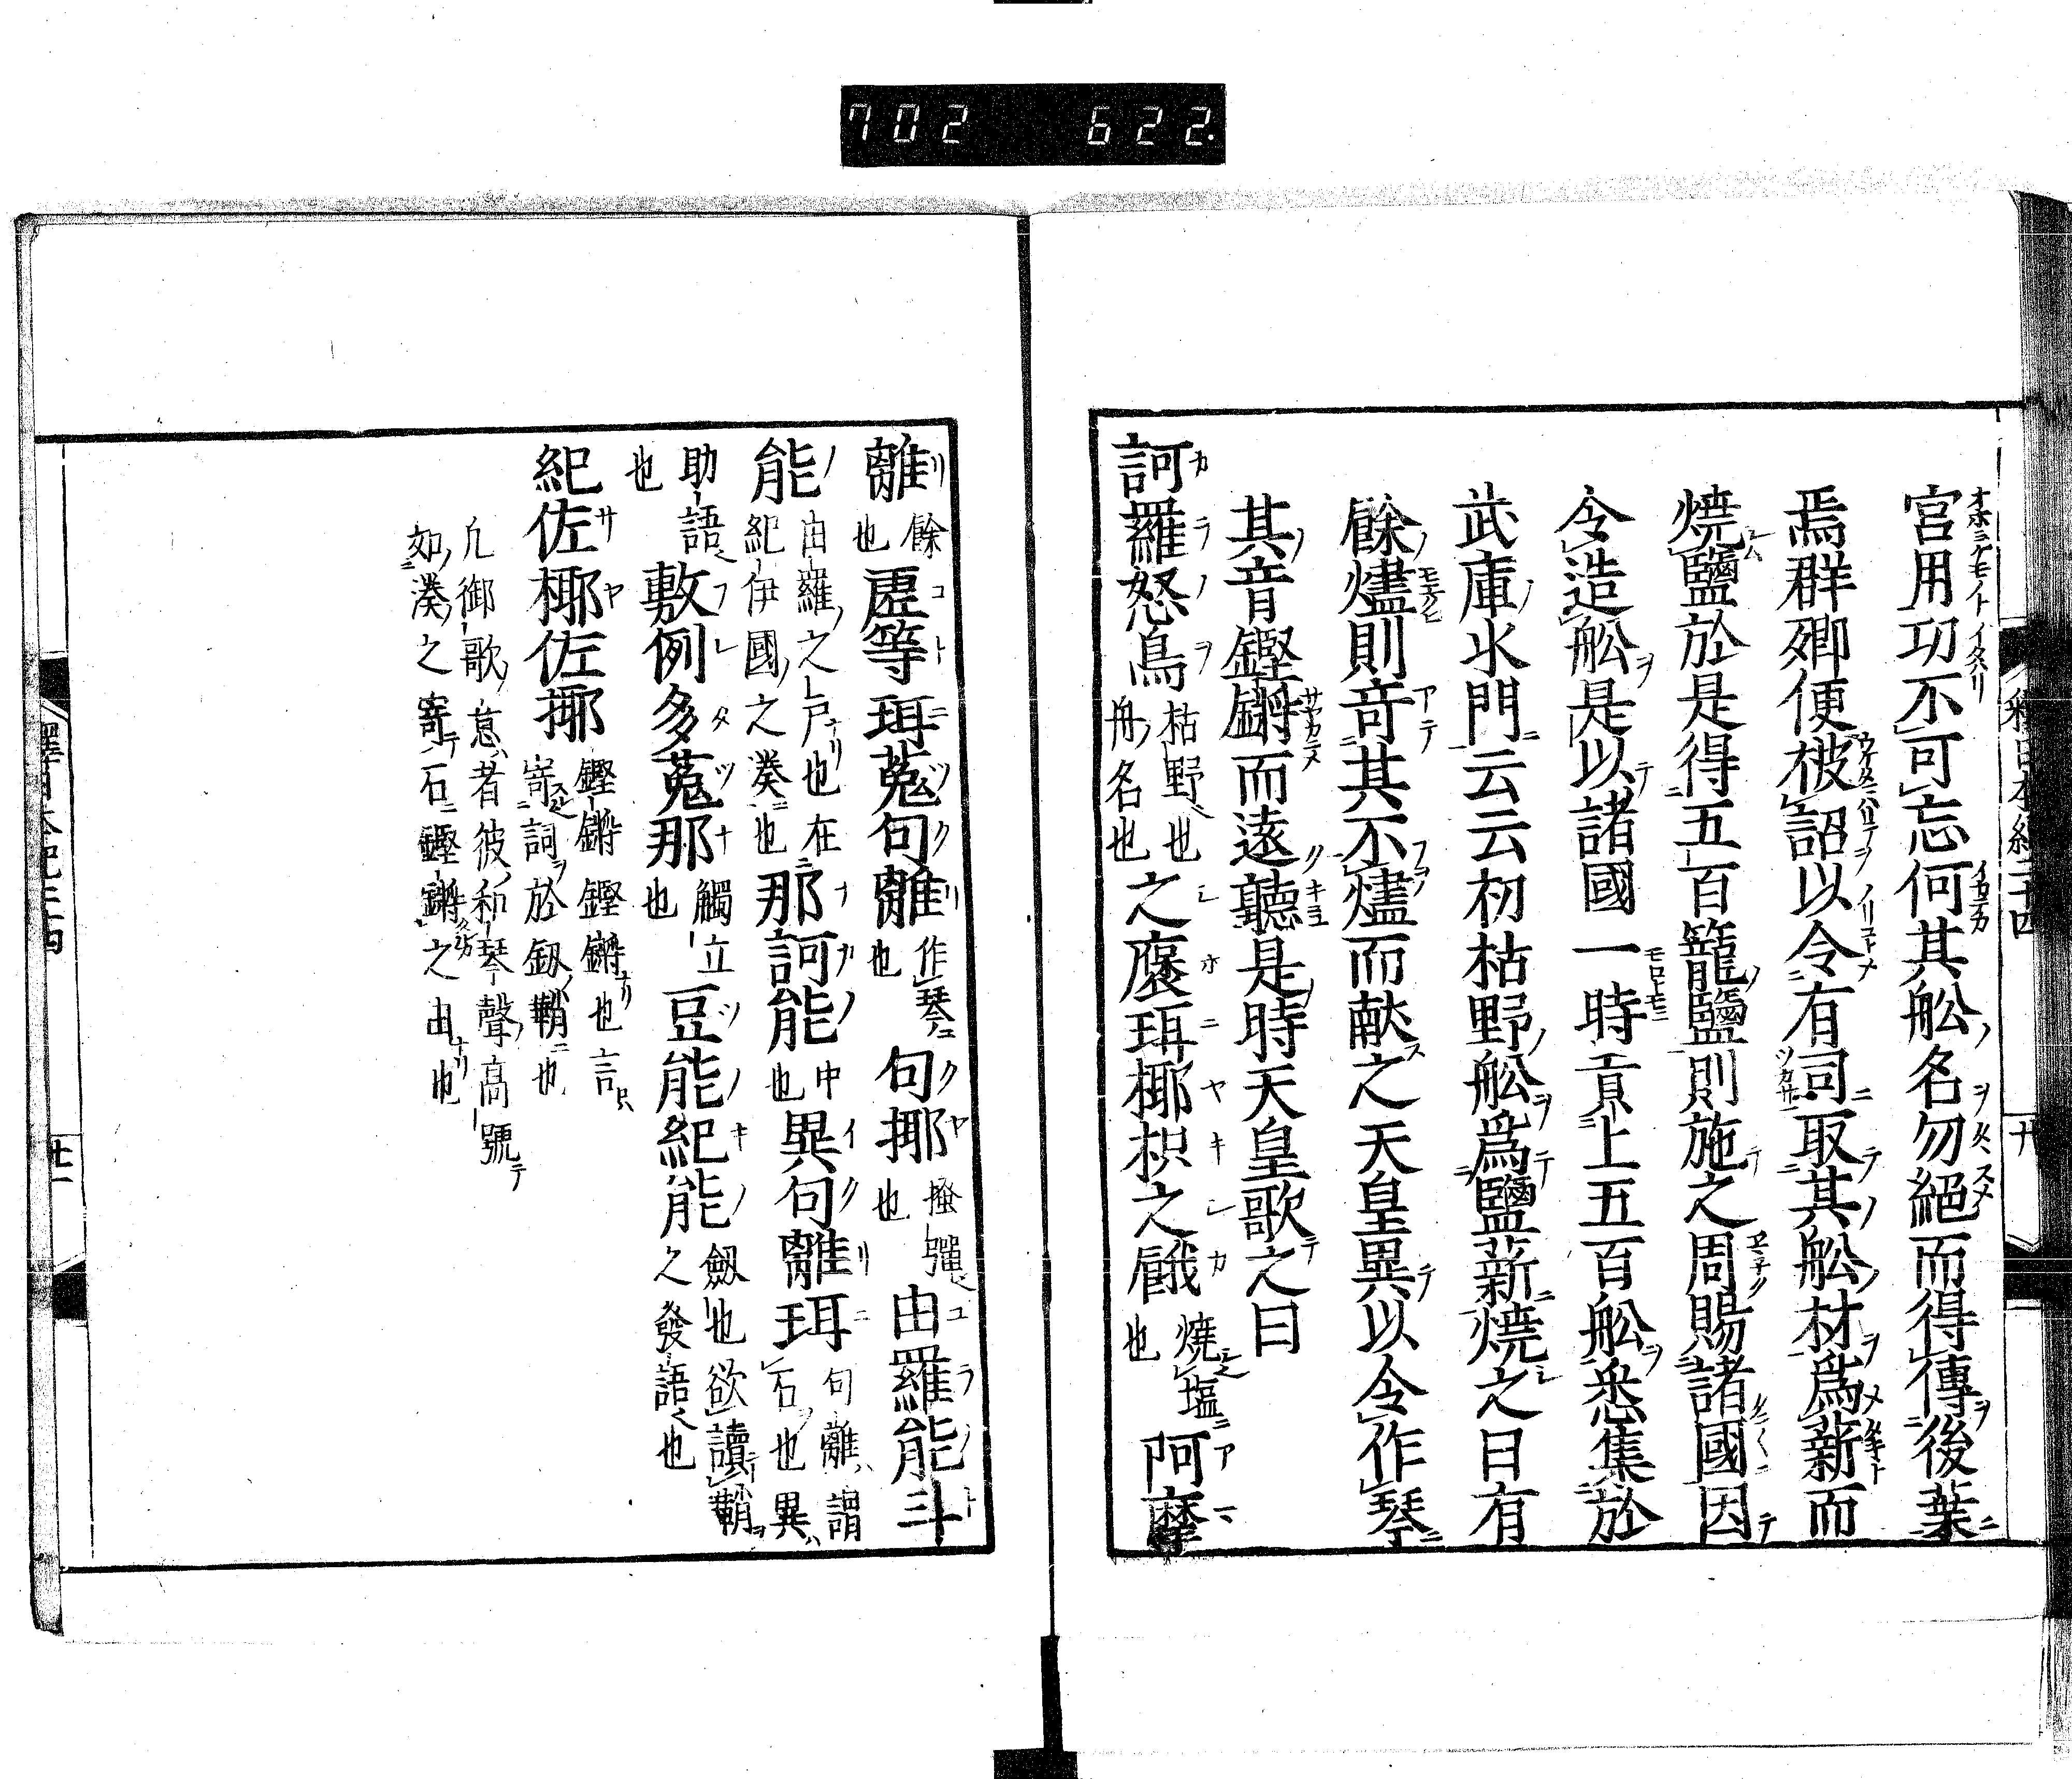 702 622
宮用功不可忘何其舩名勿絕而得傳後葉
焉群卿便被詔以令有司取其舩材爲薪而
焼鹽於是得五百籠鹽則施之周賜諸國因
令造舩是以諸國一時貢上五百舩悉集於
武庫水門云云初枯野舩爲鹽薪焼之日有
餘燼則竒其不燼而献之天皇異以令作琴
其音鏗鏘而遠聽是時天皇歌之曰
訶羅怒烏枯野也舟名也之褒珥椰枳之餓焼塩也阿摩
離餘也虚等珥菟句離作琴也句揶搔彈也由羅能斗
能由羅之戸也在紀伊國之湊也那訶能中也異句離珥句離謂石也異
助語也敷例多菟那觸立也豆能紀能劔也欲讀鞘之發語也
紀佐椰佐揶鏗鏘鏗鏘也言寄詞於釼鞘也
凡御歌意者彼和琴聲高號
如湊之寄石鏗鏘之由也
釋日本紀二十四
廿
釋日本紀二十四
廿一